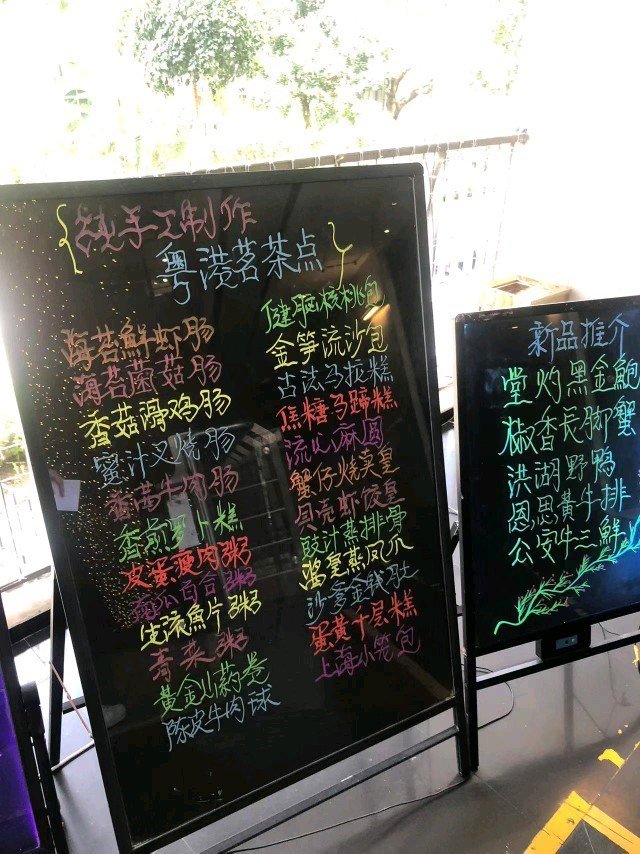 纯手工制作
粤港茗茶点
海苔鲜虾肠
海苔菌菇肠
香菇滑鸡肠
蜜汁叉烧肠
香茜牛肉肠
香煎萝卜糕
皮蛋瘦肉粥
南瓜百合粥
生流鱼片粥
青菜粥
黄金山药卷
陈皮牛肉球
健脑核桃包
金笋流沙包
古法马拉糕
焦糖马蹄糕
流心麻圆
蟹仔烧卖皇
贝壳虾饺皇
豉汁蒸排骨
酱皇蒸凤爪
沙爹金钱肚
蛋黄千层糕
上海小笼包
新品推介
堂灼黑金鲍
椒香長脚蟹
洪湖野鸭
恩思黄牛排
公安牛三鲜